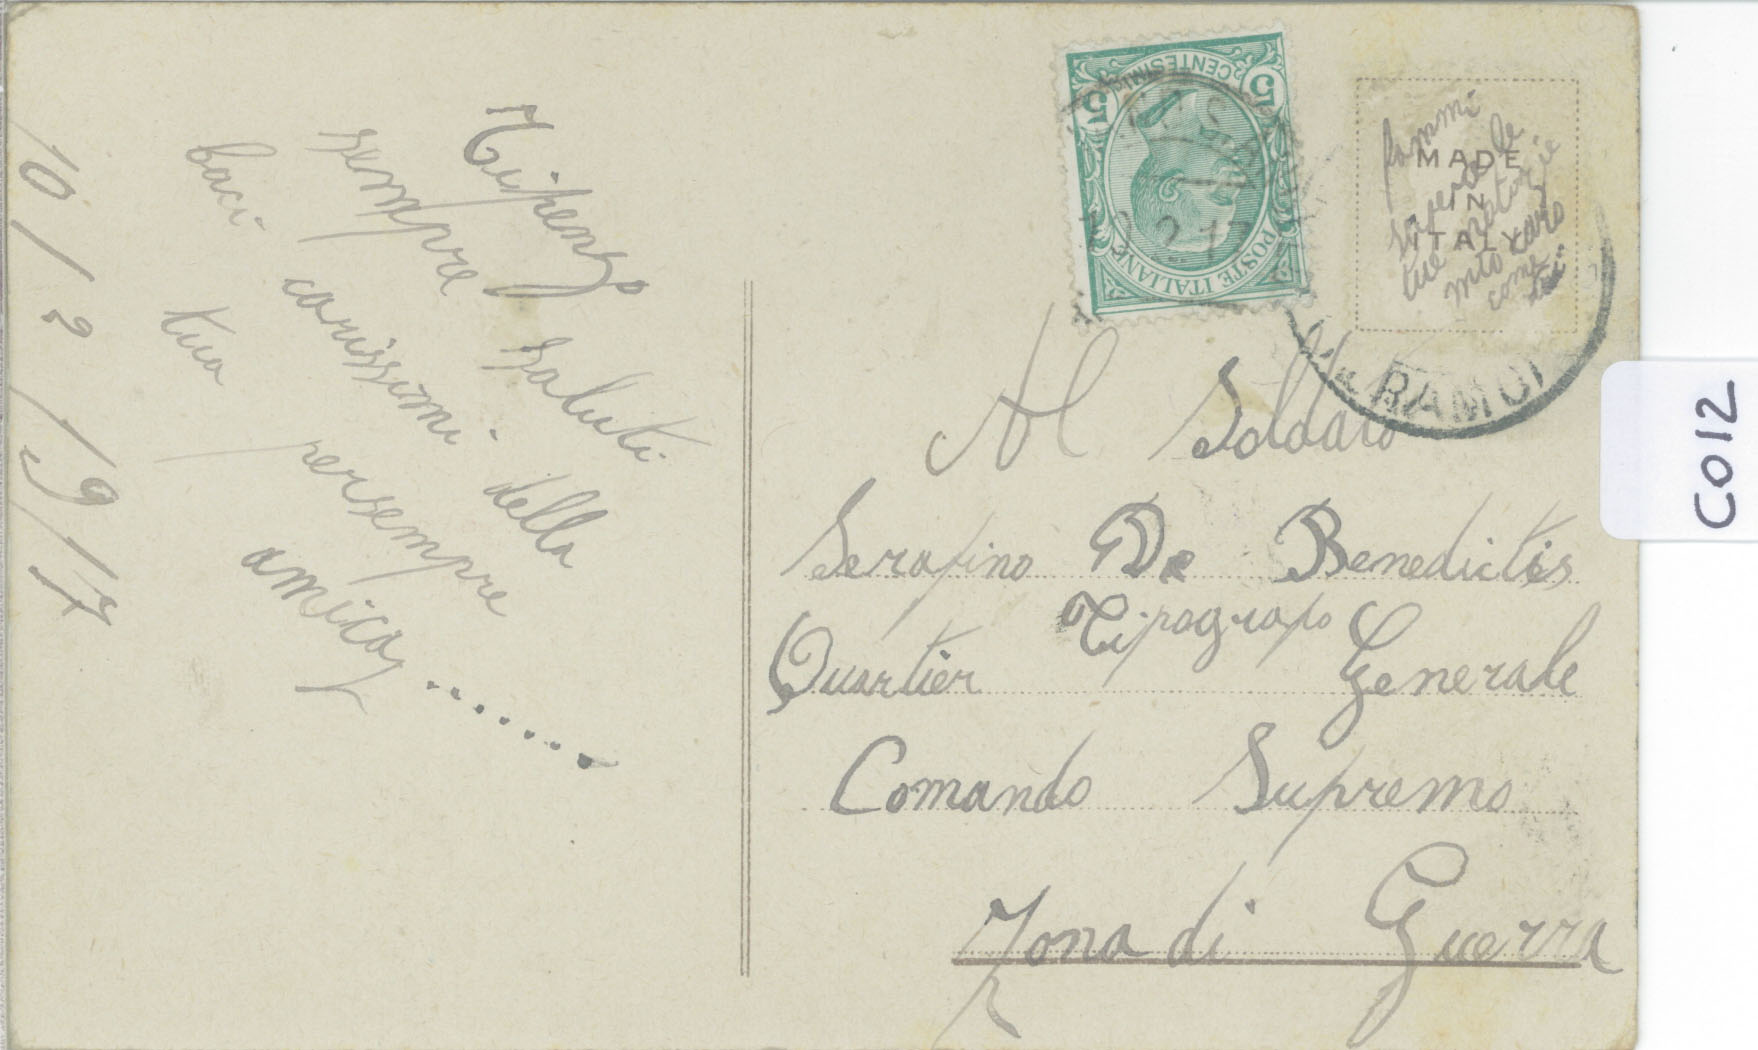 10/2 1917
Ti penso
sempre saluti
baci carissimi della
tua persempre
amica.......
POSTE ITALIANE
CENTESIMI
5 5
2.17
fammi
sapere le
tue notizie
caro
come
MADE
IN
ITALY
RAMO
Al Soldato
Serafino De Benedictis
Tipografo
Quartier Generale
Comando Supremo
Zona di Guerra
C012